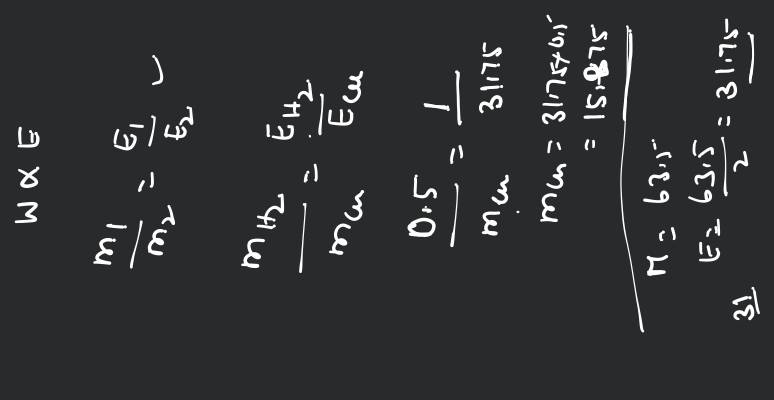 W ∝ E
m1/m2 = E1/E2
mH2/mcu = EH2/Ecu
0.5/mcu = 1/31.75
mcu = 31.75×0.5
= 15.875
M = 63.5
E = 63.5/2 = 31.75
31